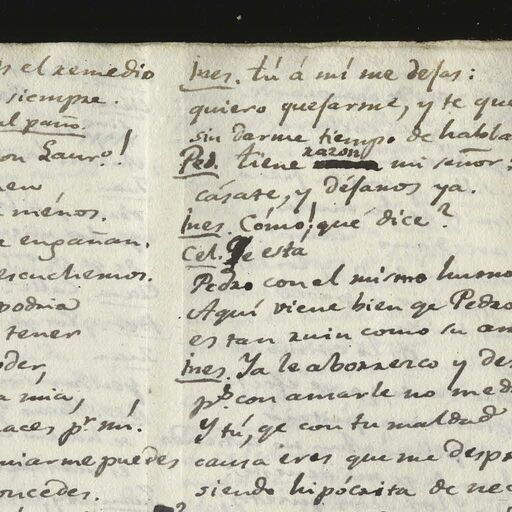 el remedio
siempre.
al paño.
on Lauro!
menos.
engañan.
escuchemos.
podria
tener
oder,
a mia,
aces pr. mi.
uiarme puedes
oncedes.
Ines. tú á mí me dejas:
quiero quejarme, y te que
sin darme tiempo de habla
Ped. tiene razon mi señor:
cásate, y déjanos ya.
Ines. Cómo! qué dice?
Cel. Qe está
Pedro con el mismo humo
Aquí viene bien qe Pedro
es tan ruin como su am
Ines. Ya le aborrezco y des
ps. con amarle no med
Y tú, qe con tu maldad
causa eres que me despr
siendo hipócrita de nec